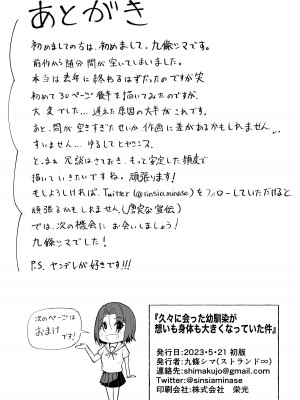 あとがき
初めましての方は、初めまして、九條シマです。
前作から随分間が空いてしまいました。
本当は去年に終わるはずだったのですが笑
初めて30ページ後半を描いてみたのですが、
大変でした…遅れた原因の大半がこれです。
あと、間が空きすぎたせいか作画に差があるかもしれません
すいません…ゆるしてヒヤシンス。
と、まぁ、冗談はさておき、もっと安定した頻度で
描いていきたいですね。頑張ります！
もしよろしければ、Twitter(@sinsiaminase)をフォローしていただけると
頑張るかもしれません。(唐突な宣伝)
では、次の機会にお会いしましょう！
九條シマでした！
P.S. ヤンデレが好きです!!!
次のページは
おまけ
です！
『久々に会った幼馴染が
想いも身体も大きくなっていた件』
発行日:2023・5・21 初版
発行者:九條シマ(ストランド∞)
連絡先:shimakujo@gmail.com
Twitter:@sinsiaminase
印刷会社:株式会社 栄光